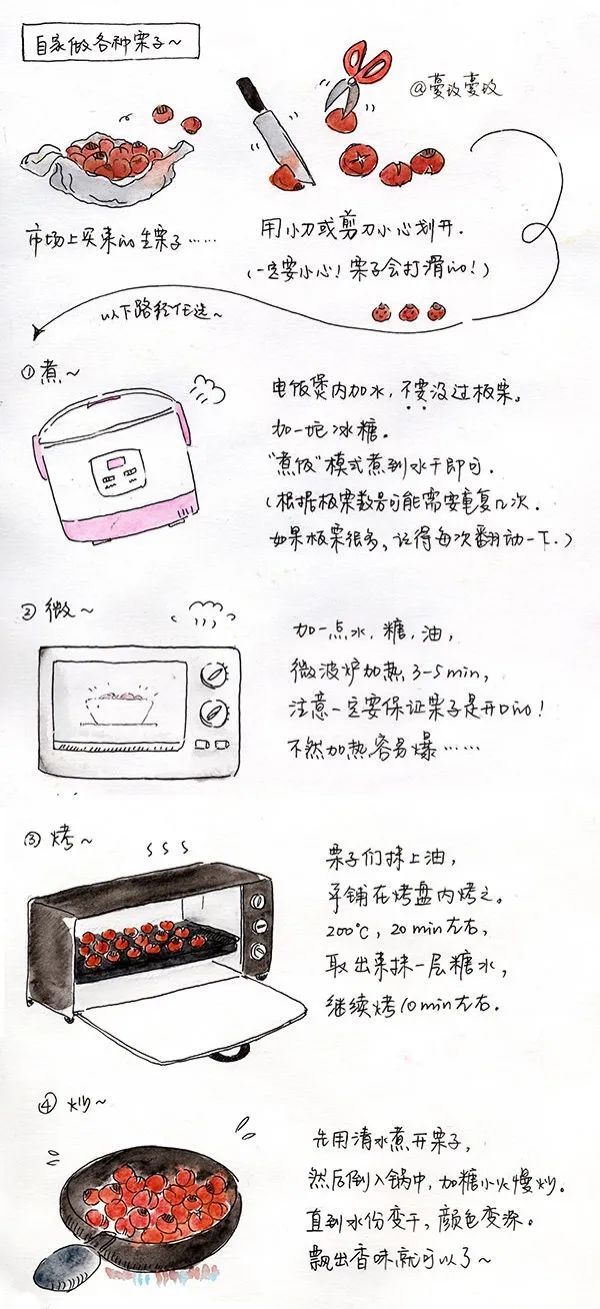 自家做各种栗子~
@蔓玫蔓玫
市场上买来的生栗子……
用小刀或剪刀小心划开.
(一定要小心！栗子会打滑的！)
以下路径任选~
①煮~
电饭煲内加水,不要没过板栗。
加一坨冰糖.
“煮饭”模式煮到水干即可.
(根据板栗数量可能需要重复几次.
如果板栗很多,记得每次翻动一下.)
②微~
加一点水.糖.油,
微波炉加热3-5min,
注意一定要保证栗子是开口的！
不然加热容易爆……
③烤~
栗子们抹上油,
平铺在烤盘内烤之。
200℃,20min左右,
取出来抹一层糖水,
继续烤10min左右.
④炒~
先用清水煮开栗子,
然后倒入锅中,加糖小火慢炒.
直到水份变干,颜色变深。
飘出香味就可以了~